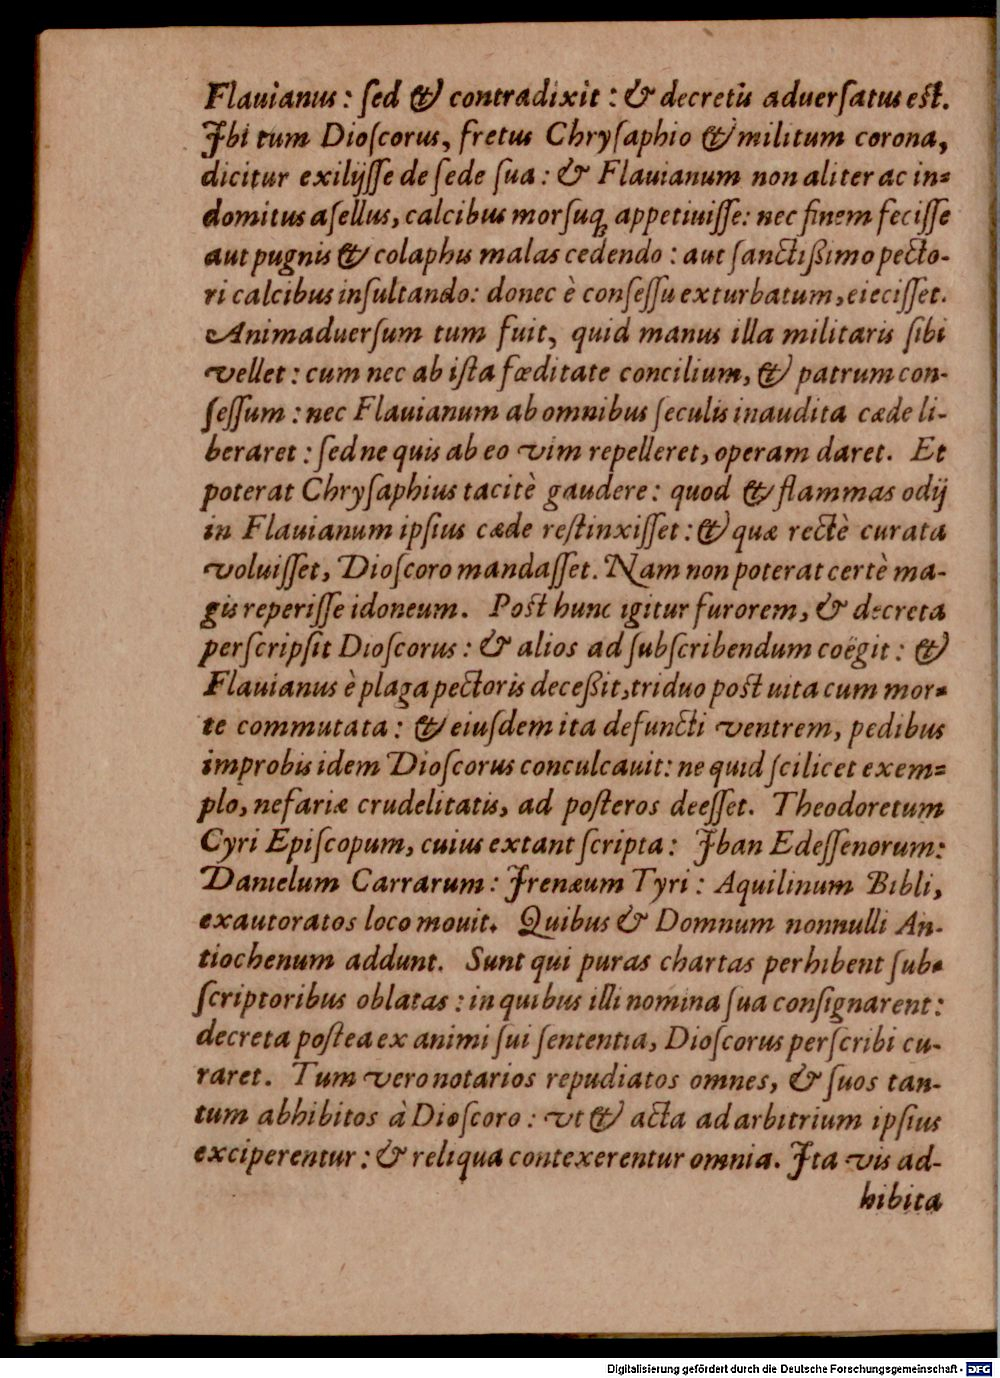 Flauianus: ſed & contradixit: & decretis aduerſatus eſt.
Ibi tum Dioſcorus, fretus Chryſaphio & militum corona,
dicitur exilijſſe de ſede ſua: & Flauianum non aliter ac in=
domitus aſellus, calcibus morſuq́; appetiuiſſe: nec finem feciſſe
aut pugnis & colaphis malas cedendo: aut ſanctißimo pecto-
ri calcibus inſultando: donec è conſeſſu exturbatum, eieciſſet.
Animaduerſum tum fuit, quid manus illa militaris ſibi
vellet: cum nec ab iſta fœditate concilium, & patrum con-
ſeſſum: nec Flauianum ab omnibus ſeculis inaudita cæde li-
beraret: ſed ne quis ab eo vim repelleret, operam daret. Et
poterat Chryſaphius tacitè gaudere: quod & flammas odij
in Flauianum ipſius cæde reſtinxiſſet: & quæ rectè curata
voluiſſet, Dioſcoro mandaſſet. Nam non poterat certè ma-
gis reperiſſe idoneum. Poſt hunc igitur furorem, & decreta
perſcripſit Dioſcorus: & alios ad ſubſcribendum coëgit: &
Flauianus è plaga pectoris deceßit, triduo poſt uita cum mor=
te commutata: & eiuſdem ita defuncti ventrem, pedibus
improbis idem Dioſcorus conculcauit: ne quid ſcilicet exem=
plo, nefariæ crudelitatis, ad poſteros deeſſet. Theodoretum
Cyri Epiſcopum, cuius extant ſcripta: Iban Edeſſenorum:
Danielum Carrarum: Irenæum Tyri: Aquilinum Bibli,
exautoratos loco mouit. Quibus & Domnum nonnulli An-
tiochenum addunt. Sunt qui puras chartas perhibent ſub=
ſcriptoribus oblatas: in quibus illi nomina ſua conſignarent:
decreta poſtea ex animi ſui ſententia, Dioſcorus perſcribi cu-
raret. Tum vero notarios repudiatos omnes, & ſuos tan-
tum abhibitos à Dioſcoro: vt & acta ad arbitrium ipſius
exciperentur: & reliqua contexerentur omnia. Ita vis ad-
hibita
Digitalisierung gefördert durch die Deutsche Forschungsgemeinschaft - DFG